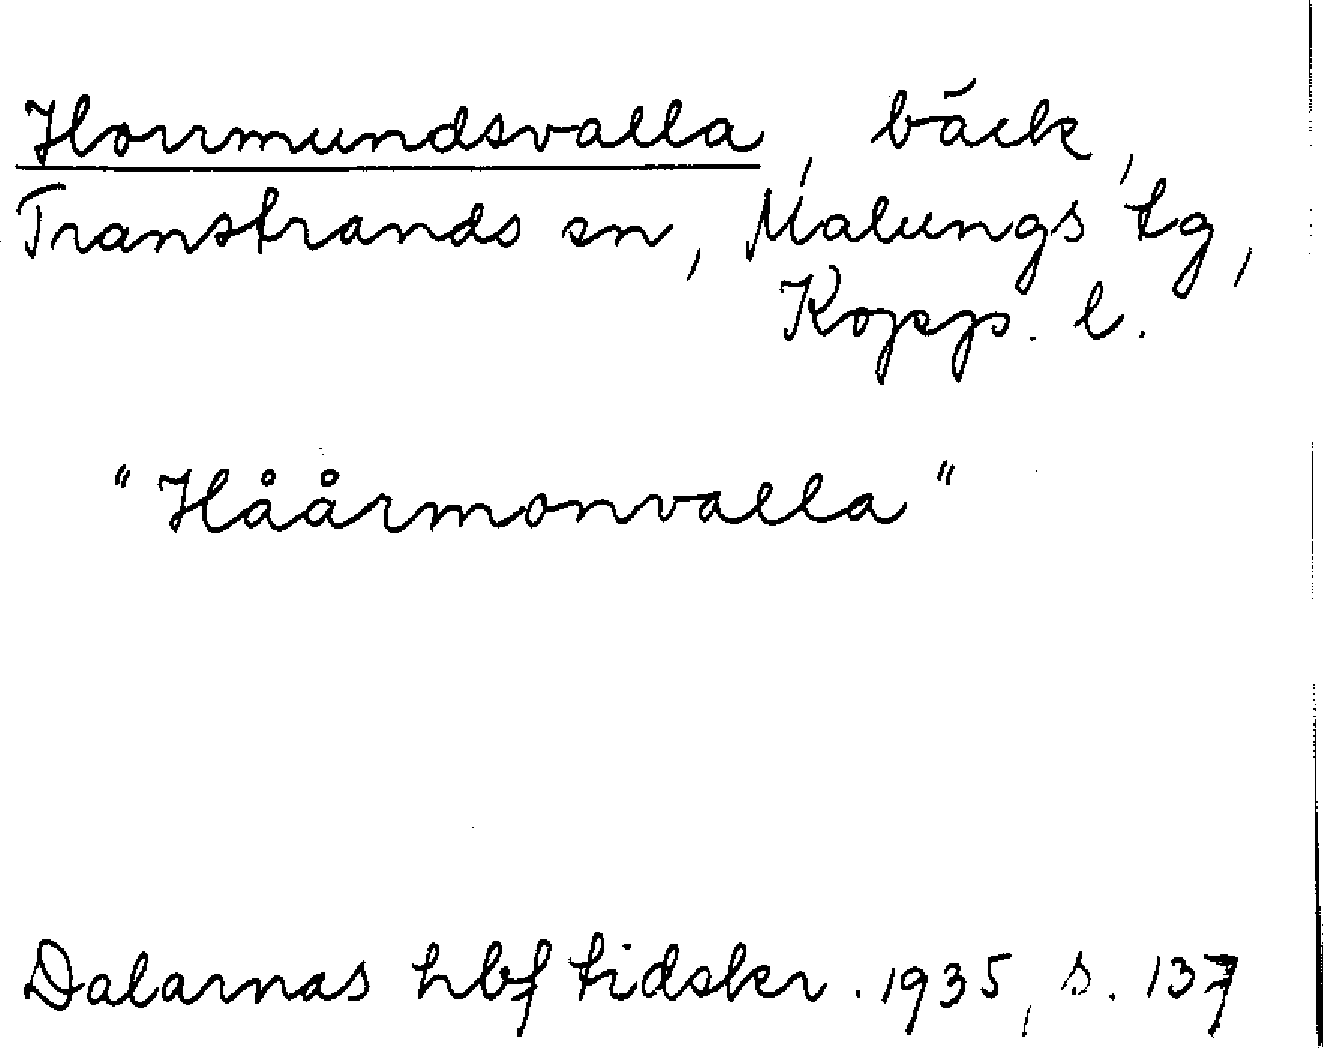 Horrmundsvalla, bäck,
Transtrands sn, Malungs tg,
Kopp. l.
"Håårmonvalla"
Dalarnas hbf tidskr. 1935, s. 137